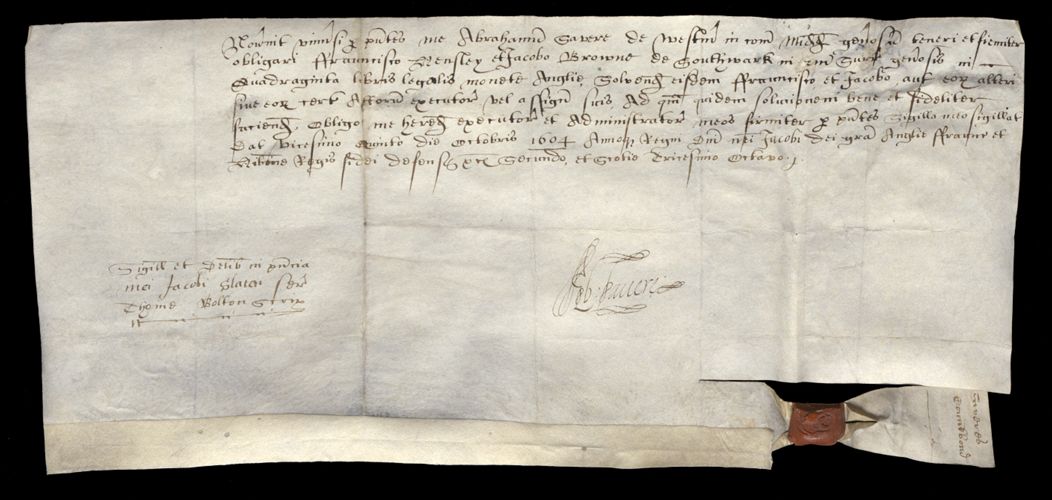 Noverint universi per presentes me Abrahamum Savere de Westmr in com Midd generosum teneri et firmiter
obligari Ffrauncisco Hensley et Jacobo Browne de Southwark in com Surr generosis in
Quadraginta libris legalis monete Anglie Solvend eisdem Ffrauncisco et Jacobo aut eor alteri
sive eor cert Attorn executor vel assign suis, Ad quam quidem soluconem bene et fideliter
faciend Obligo me hered executor et Administrator meos firmiter per presentes Sigillo meo sigillat
Dat vicesimo Quinto die Octobris 1604 Annoq Regni Dni nri Jacobi dei gra Anglie Ffrauncie et
Hibnie Regis fidei defens &c Secundo, et Scotie Tricesimo Octavo
Sigill et Delib in pncia
mei Jacobi Slater servi
Thome Bolton Scr
Ab: Savere